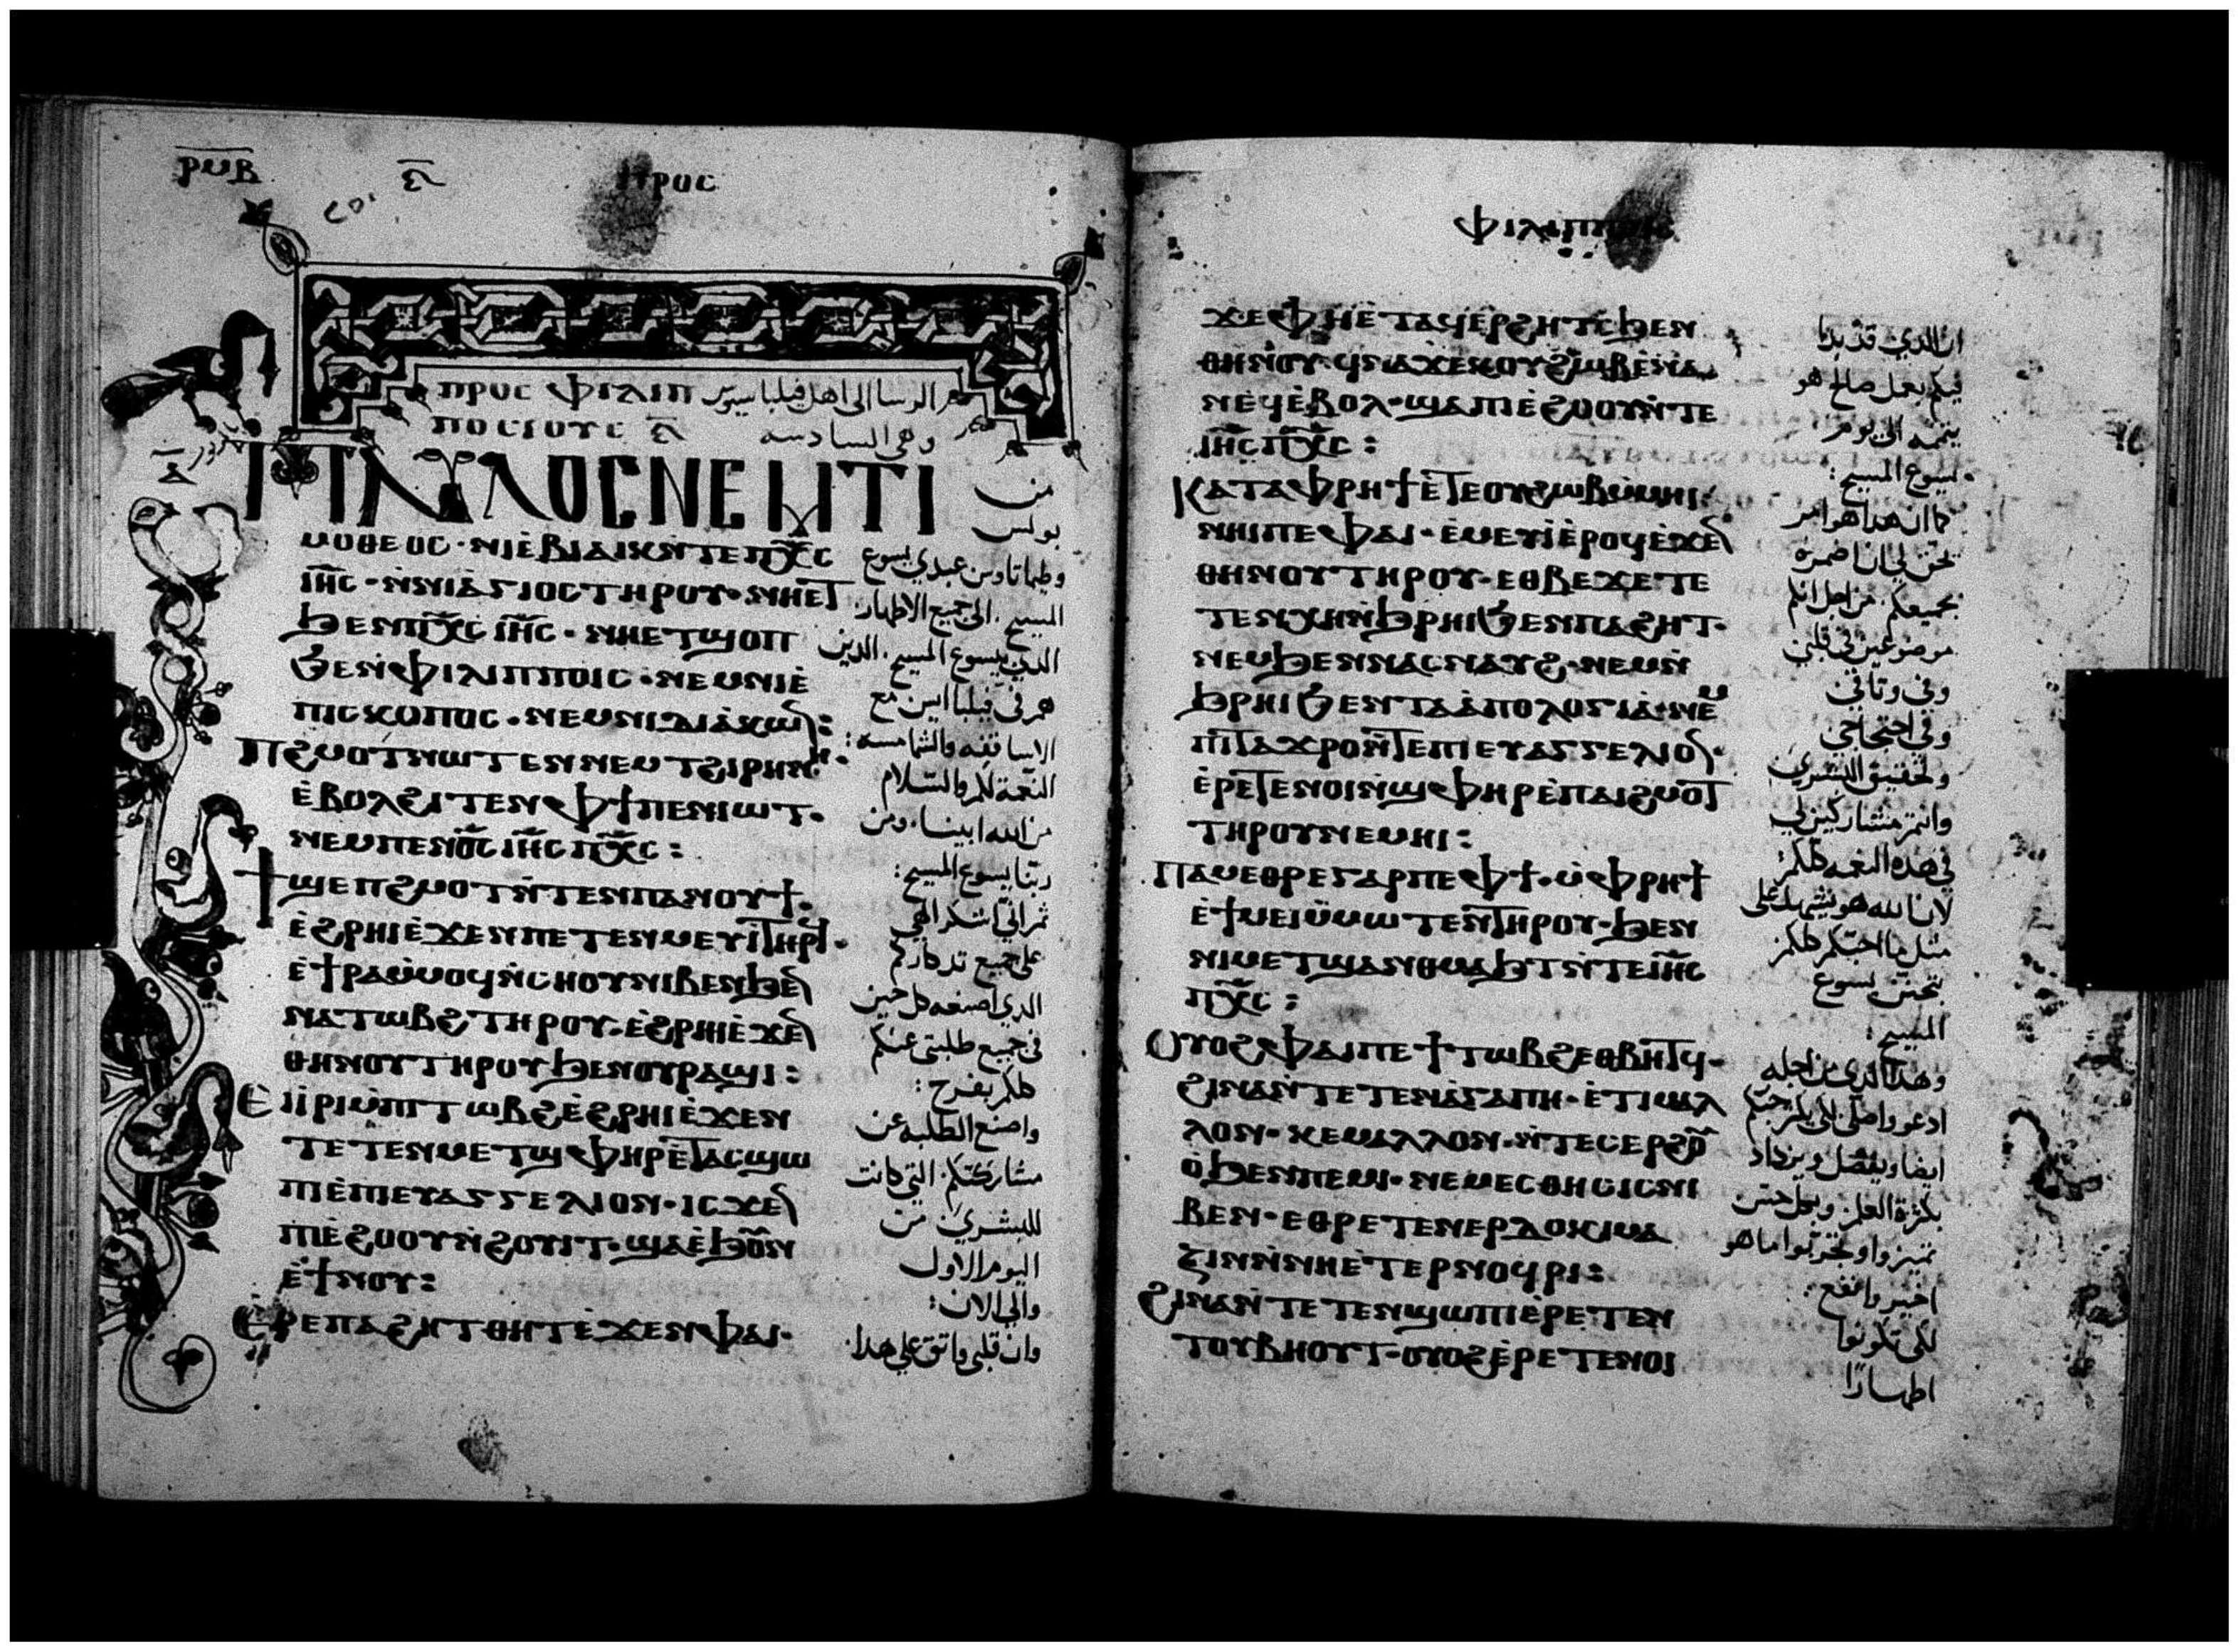 ⲣⲙⲃ ⲋ ⲡⲣⲟⲥ
ⲡⲣⲟⲥ ⲫⲓⲗⲓⲡ
ⲡⲟⲥⲓⲟⲩⲥ ⲋ
وهي السادسه
ⲡⲁⲩⲗⲟⲥ ⲛⲉⲙ ⲧⲓ
من
بولس
ⲙⲟⲑⲉⲟⲥ · ⲛⲓⲉ̀ⲃⲓⲁⲓⲕ ⲛ̀ⲧⲉ ⲡⲭ̅ⲥ
ⲓⲏ̅ⲥ · ⲛ̀ⲛⲓⲁ̀ⲅⲓⲟⲥ ⲧⲏⲣⲟⲩ · ⲛⲏⲉⲧ
ϧⲉⲛ ⲡⲭ̅ⲥ ⲓⲏ̅ⲥ · ⲛⲏⲉⲧϣⲟⲡ
ϧⲉⲛ ⲫⲓⲗⲓⲡⲡⲟⲓⲥ · ⲛⲉⲙ ⲛⲓⲉ̀
ⲡⲓⲥⲕⲟⲡⲟⲥ · ⲛⲉⲙ ⲛⲓⲇⲓⲁ̀ⲕⲱⲛ :
ⲡϩⲙⲟⲧ ⲛⲱⲧⲉⲛ ⲛⲉⲙ ⲧϩⲓⲣⲏⲛⲏ ·
ⲉ̀ⲃⲟⲗ ϩⲓⲧⲉⲛ ⲫϯ ⲡⲉⲛⲓⲱⲧ ·
ⲛⲉⲙ ⲡⲉⲛⲟ̅ⲥ ⲓⲏ̅ⲥ ⲡⲭ̅ⲥ :
ϯϣⲉⲡϩⲙⲟⲧ ⲛ̀ⲧⲉⲛ ⲡⲁⲛⲟⲩϯ ·
ⲉ̀ϩⲣⲏⲓ ⲉ̀ϫⲉⲛ ⲡⲉⲧⲉⲛⲙⲉⲩⲓ̀ ⲧⲏⲣϥ ·
ⲉ̀ϯⲣⲁ ⲙ̀ⲙⲟϥ ⲛ̀ⲥⲏⲟⲩ ⲛⲓⲃⲉⲛ ϧⲉⲛ
ⲛⲁⲧⲱⲃϩ ⲧⲏⲣⲟⲩ · ⲉ̀ϩⲣⲏⲓ ⲉ̀ϫⲉⲛ
ⲑⲏⲛⲟⲩ ⲧⲏⲣⲟⲩ ϧⲉⲛ ⲟⲩⲣⲁϣⲓ :
ⲉⲓⲓ̀ⲣⲓ ⲙ̀ⲡⲓⲧⲱⲃϩ ⲉ̀ϩⲣⲏⲓ ⲉ̀ϫⲉⲛ
ⲧⲉⲧⲉⲛⲙⲉⲧϣⲫⲏⲣ ⲉ̀ⲧⲁⲥϣⲱ
ⲡⲓ ⲉ̀ⲡⲓⲉⲩⲁⲅⲅⲉⲗⲓⲟⲛ · ⲓⲥϫⲉⲛ
ⲡⲓⲉ̀ϩⲟⲟⲩ ⲛ̀ϩⲟⲩⲓⲧ · ϣⲁ ⲉ̀ϧⲟⲩⲛ
ⲉ̀ϯⲛⲟⲩ :
ⲉ̀ⲣⲉ ⲡⲁϩⲏⲧ ⲑⲏⲧ ⲉ̀ϫⲉⲛ ⲫⲁⲓ ·
وطيماتاوس عبدي يسوع
المسيح . الى جميع الاطهار
الذين بيسوع المسيح . الذين
هم في فيلبّاايس مع
الاساقفه والشمامسه :
النعمة لكم والسّلام
من الله ابينا . ومن
ربّنا يسوع المسيح :
ثم اني اشكر الهي
على جميع تذكاركم
الذي اصنعه كل حين
في جميع طلبتي عنكم
كلكم بفرح :
واصنع الطلبه عن
مشاركتكم . التي كانت
للبشرى من
اليوم الاول
والي الان :
وان قلبي واثق على هذا .
ⲫⲓⲗⲓⲡⲡ
ϫⲉ ⲫⲏ ⲉ̀ⲧⲁϥⲉⲣϩⲏⲧⲥ ϧⲉⲛ
ⲑⲏⲛⲟⲩ · ϥⲛⲁϫⲉⲕ ⲟⲩϩⲱⲃ ⲉ̀ⲛⲁ
ⲛⲉϥ ⲉ̀ⲃⲟⲗ · ϣⲁ ⲡⲓⲉ̀ϩⲟⲟⲩ ⲛ̀ⲧⲉ
ⲓⲏ̅ⲥ ⲡⲭ̅ⲥ :
ⲕⲁⲧⲁ ⲫⲣⲏϯ ⲉ̀ⲧⲉ ⲟⲩϩⲱⲃ ⲙ̀ⲙⲏⲓ
ⲛⲏⲓ ⲡⲉ ⲫⲁⲓ · ⲉ̀ⲙⲉⲩⲓ̀ ⲉ̀ⲣⲟϥ ⲉ̀ϫⲉⲛ
ⲑⲏⲛⲟⲩ ⲧⲏⲣⲟⲩ · ⲉⲑⲃⲉ ϫⲉ ⲧⲉ
ⲧⲉⲛⲭⲏ ⲛ̀ϧⲣⲏⲓ ϧⲉⲛ ⲡⲁϩⲏⲧ ·
ⲛⲉⲙ ϧⲉⲛ ⲛⲁⲥⲛⲁⲩϩ · ⲛⲉⲙ ⲛ̀
ϧⲣⲏⲓ ϧⲉⲛ ⲧⲁⲁ̀ⲡⲟⲗⲟⲅⲓⲁ̀ · ⲛⲉⲙ
ⲡⲓⲧⲁϫⲣⲟ ⲛ̀ⲧⲉ ⲡⲓⲉⲩⲁⲅⲅⲉⲗⲓⲟⲛ ·
ⲉ̀ⲣⲉⲧⲉⲛⲟⲓ ⲛ̀ϣⲫⲏⲣ ⲉ̀ⲡⲁⲓϩⲙⲟⲧ
ⲧⲏⲣⲟⲩ ⲛⲉⲙⲏⲓ :
ⲡⲁⲙⲉⲑⲣⲉ ⲅⲁⲣ ⲡⲉ ⲫϯ · ⲙ̀ⲫⲣⲏϯ
ⲉ̀ϯⲙⲉⲓ ⲙ̀ⲙⲱⲧⲉⲛ ⲧⲏⲣⲟⲩ · ϧⲉⲛ
ⲛⲓⲙⲉⲧϣⲁⲛⲑⲙⲁϧⲧ ⲛ̀ⲧⲉ ⲓⲏ̅ⲥ
ⲡⲭ̅ⲥ :
ⲟⲩⲟϩ ⲫⲁⲓ ⲡⲉ ϯⲧⲱⲃϩ ⲉⲑⲃⲏⲧϥ ·
ϩⲓⲛⲁ ⲛ̀ⲧⲉ ⲧⲉⲧⲉⲛⲁ̀ⲅⲁⲡⲏ · ⲉ̀ⲧⲓ ⲙⲁⲗ
ⲗⲟⲛ · ⲕⲉ ⲙⲁⲗⲗⲟⲛ · ⲛ̀ⲧⲉⲥⲉⲣϩⲟⲩ
ⲟ̀ ϧⲉⲛ ⲡⲉⲙⲓ · ⲛⲉⲙ ⲉⲥⲑⲏⲥⲓⲥ ⲛⲓ
ⲃⲉⲛ · ⲉⲑⲣⲉⲧⲉⲛⲉⲣⲇⲟⲕⲓⲙⲁ
ⲍⲓⲛ ⲛ̀ⲛⲏ ⲉ̀ⲧⲉⲣⲛⲟϥⲣⲓ :
ϩⲓⲛⲁ ⲛ̀ⲧⲉⲧⲉⲛϣⲱⲡⲓ ⲉ̀ⲣⲉⲧⲉⲛ
ⲧⲟⲩⲃⲏⲟⲩⲧ · ⲟⲩⲟϩ ⲉ̀ⲣⲉⲧⲉⲛⲟⲓ
ان الذي قد بدا
فيكم بعمل صالح هو
يتممه الى يوم
يسوع المسيح :
كما ان هذا هو امر
تحق لي ان اضمره
بجميعكم . من اجل انكم
موضوعين في قلبي
وفي وثاقي
وفي احتجاجي
وتحقيق البشرى
وانتم مشاركين لي
في هذه النعمه كلكم :
لان الله هو يشهد لي على
مثل ما احبّكم كلكم
بتحنن يسوع
المسيح :
وهذا الذي من اجله
ايضا ويفضل ويزداد
بكثرة العلم وبكل حسّ
لكي تكونوا
اطهارًا